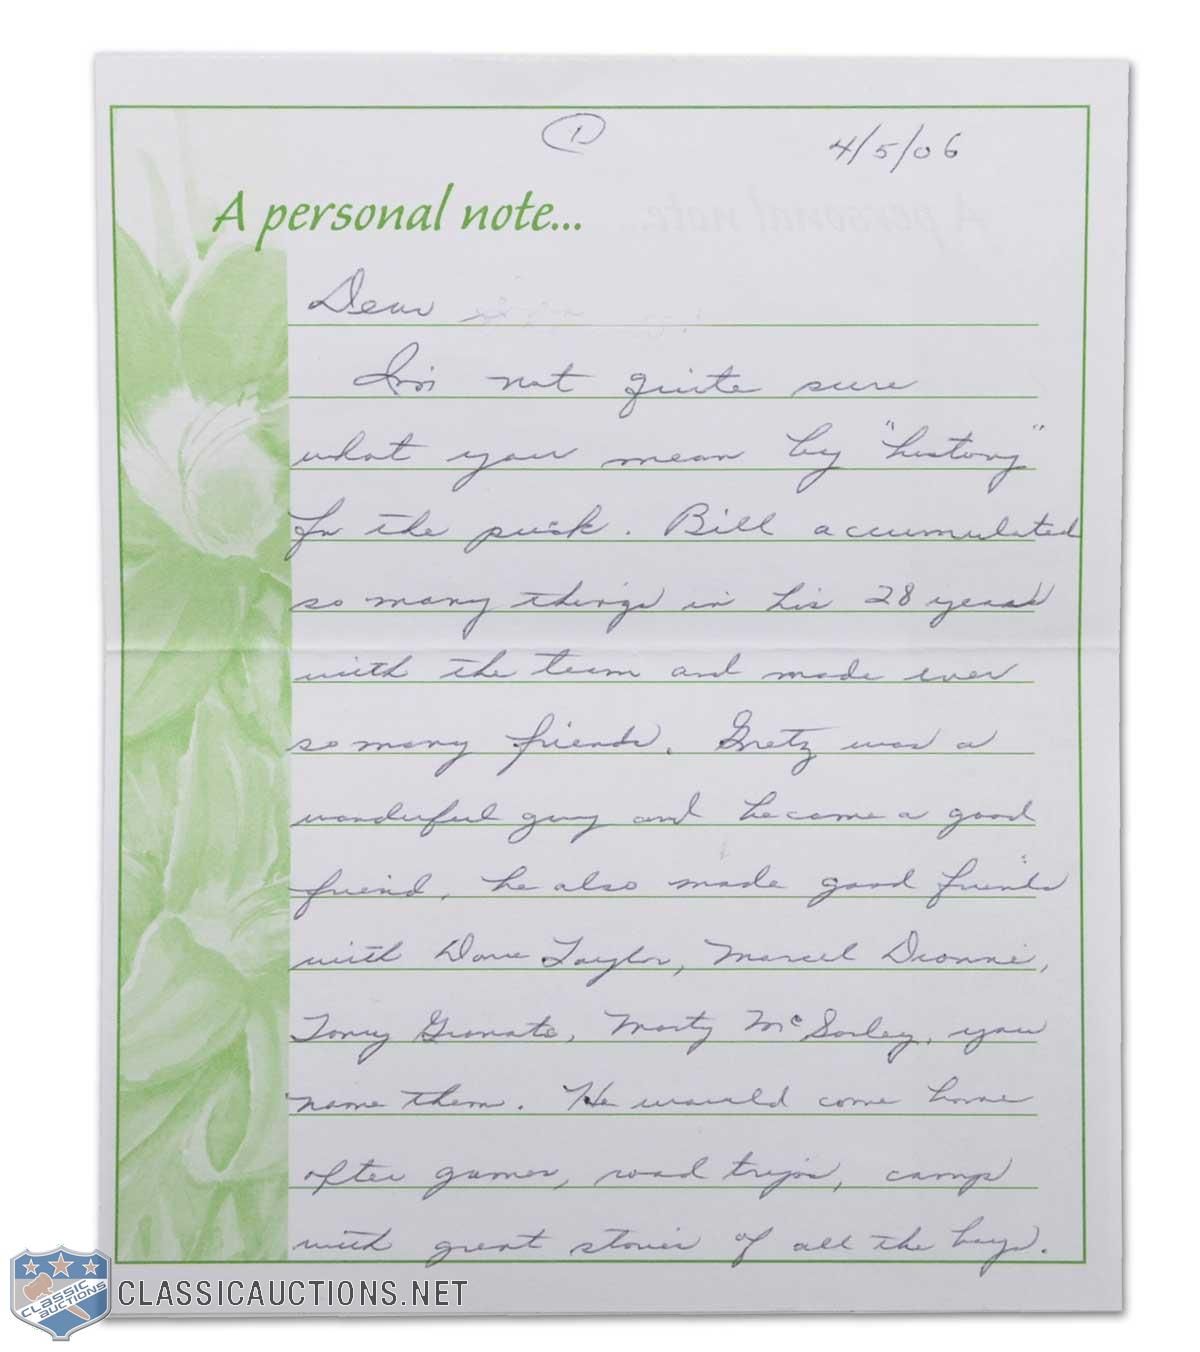 1
4/5/06
A personal note...
Dear
I'm not quite sure
what you mean by "history"
for the puck. Bill accumulated
so many things in his 28 years
with the team and made ever
so many friends. Gretz was a
wonderful guy and became a good
friend, he also made good friends
with Dave Taylor, Marcel Dionne,
Tony Granato, Marty McSorley, you
name them. He would come home
after games, road trips, camp
with great stories of all the boys.
CLASSIC AUCTIONS
CLASSICAUCTIONS.NET